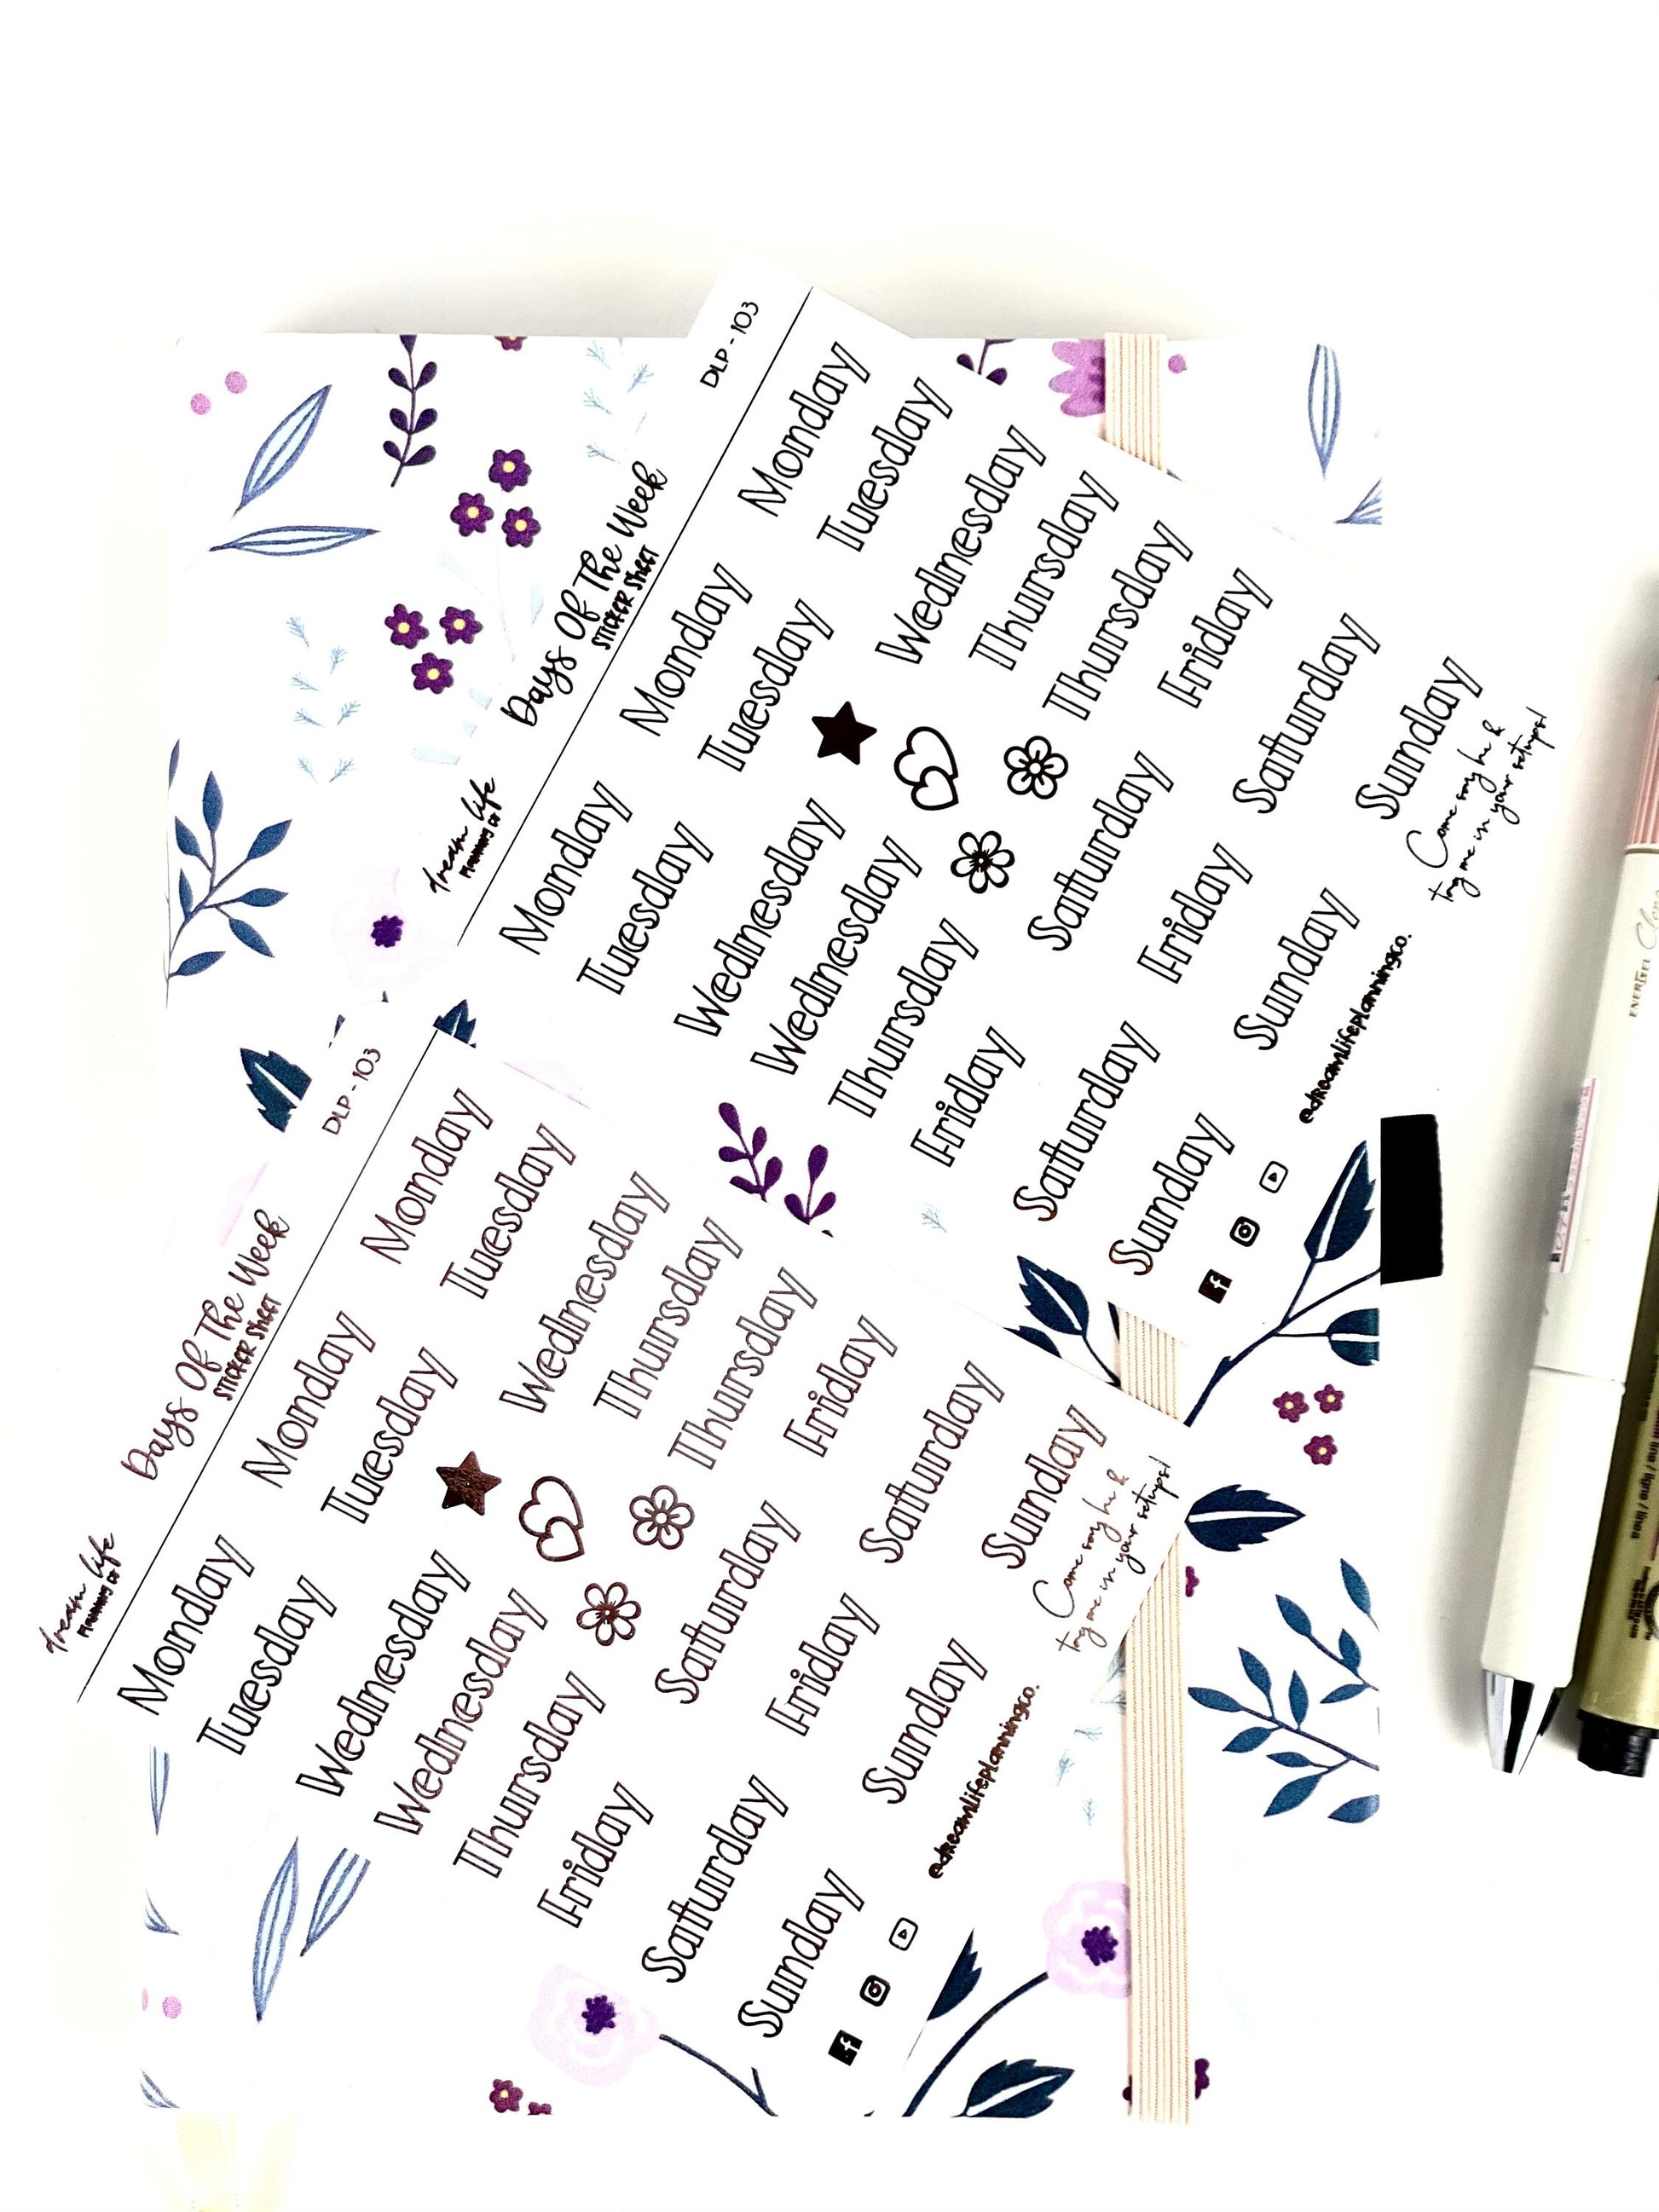 dream life
PLANNING CO
Days Of The Week
STICKER SHEET
DLP - 103
Monday Monday Monday
Tuesday Tuesday Tuesday
Wednesday Wednesday
Wednesday Thursday
Thursday Thursday
Friday Saturday Friday
Saturday Friday Saturday
Sunday Sunday Sunday
@dreamlifeplanningco.
Come say hi &
tag me in your setups!
dream life
PLANNING CO
Days Of The Week
STICKER SHEET
DLP - 103
Monday Monday Monday
Tuesday Tuesday Tuesday
Wednesday Wednesday
Wednesday Thursday
Thursday Thursday
Friday Saturday Friday
Saturday Friday Saturday
Sunday Sunday Sunday
@dreamlifeplanningco.
Come say hi &
tag me in your setups!
ENERGEL
line / ligne / línea